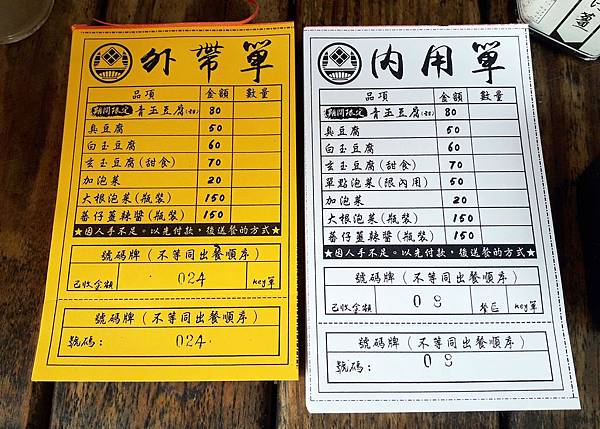 外帶單
品項 金額 數量
期間限定 青玉豆腐(甜) 80
臭豆腐 50
白玉豆腐 60
玄玉豆腐(甜食) 70
加泡菜 20
大根泡菜(瓶裝) 150
蕃仔薑辣醬(瓶裝) 150
★因人手不足。以先付款,後送餐的方式★
號碼牌(不等同出餐順序)
已收金額 024 key單
號碼牌(不等同出餐順序)
號碼: 024
內用單
品項 金額 數量
期間限定 青玉豆腐(甜) 80
臭豆腐 50
白玉豆腐 60
玄玉豆腐(甜食) 70
單點泡菜(限內用) 50
加泡菜 20
大根泡菜(瓶裝) 150
蕃仔薑辣醬(瓶裝) 150
★因人手不足。以先付款,後送餐的方式★
號碼牌(不等同出餐順序)
已收金額 08 餐區 key單
號碼牌(不等同出餐順序)
號碼: 08